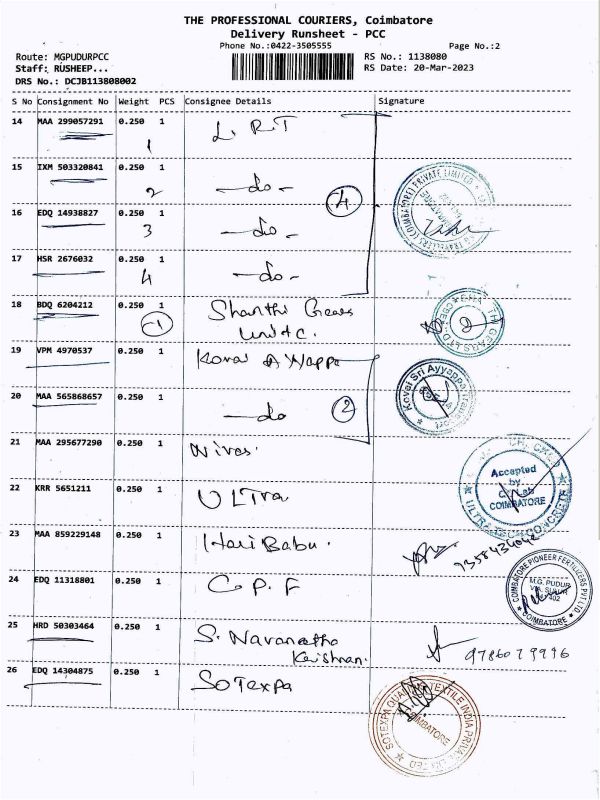 THE PROFESSIONAL COURIERS, Coimbatore
Delivery Runsheet - PCC
Phone No.:0422-3505555 Page No.:2
Route: MGPUDURPCC RS No.: 1138080
Staff: RUSHEEP... RS Date: 20-Mar-2023
DRS No.: DCJB113808002
S No Consignment No Weight PCS Consignee Details Signature
14 MAA 299057291 0.250 1 L.R.T
1
15 IXM 503320841 0.250 1 -do-
2 4
16 EDQ 14938827 0.250 1 -do-
3
17 HSR 2676032 0.250 1 -do-
4
18 BDQ 6204212 0.250 1 Shanthi Gears
-1 Unit C.
19 VPM 4970537 0.250 1 Kovai Ayyappa
20 MAA 565868657 0.250 1 -do 2
Kovai Sri Ayyappa
21 MAA 295677290 0.250 1 Nivas.
Accepted
by
COIMBATORE
22 KRR 5651211 0.250 1 ULTra
23 MAA 859229148 0.250 1 Hari Babu.
24 EDQ 11318801 0.250 1 C.P.F
COIMBATORE PIONEER FERTILIZERS PVT LTD
M.G. PUDUR
COIMBATORE
25 HRD 50303464 0.250 1 S. Navanatha
Krishnan. 9786079996
26 EDQ 14304875 0.250 1 SOTexpa
SOTEXPA QUALITY TEXTILE INDIA PRIVATE LIMITED
COIMBATORE